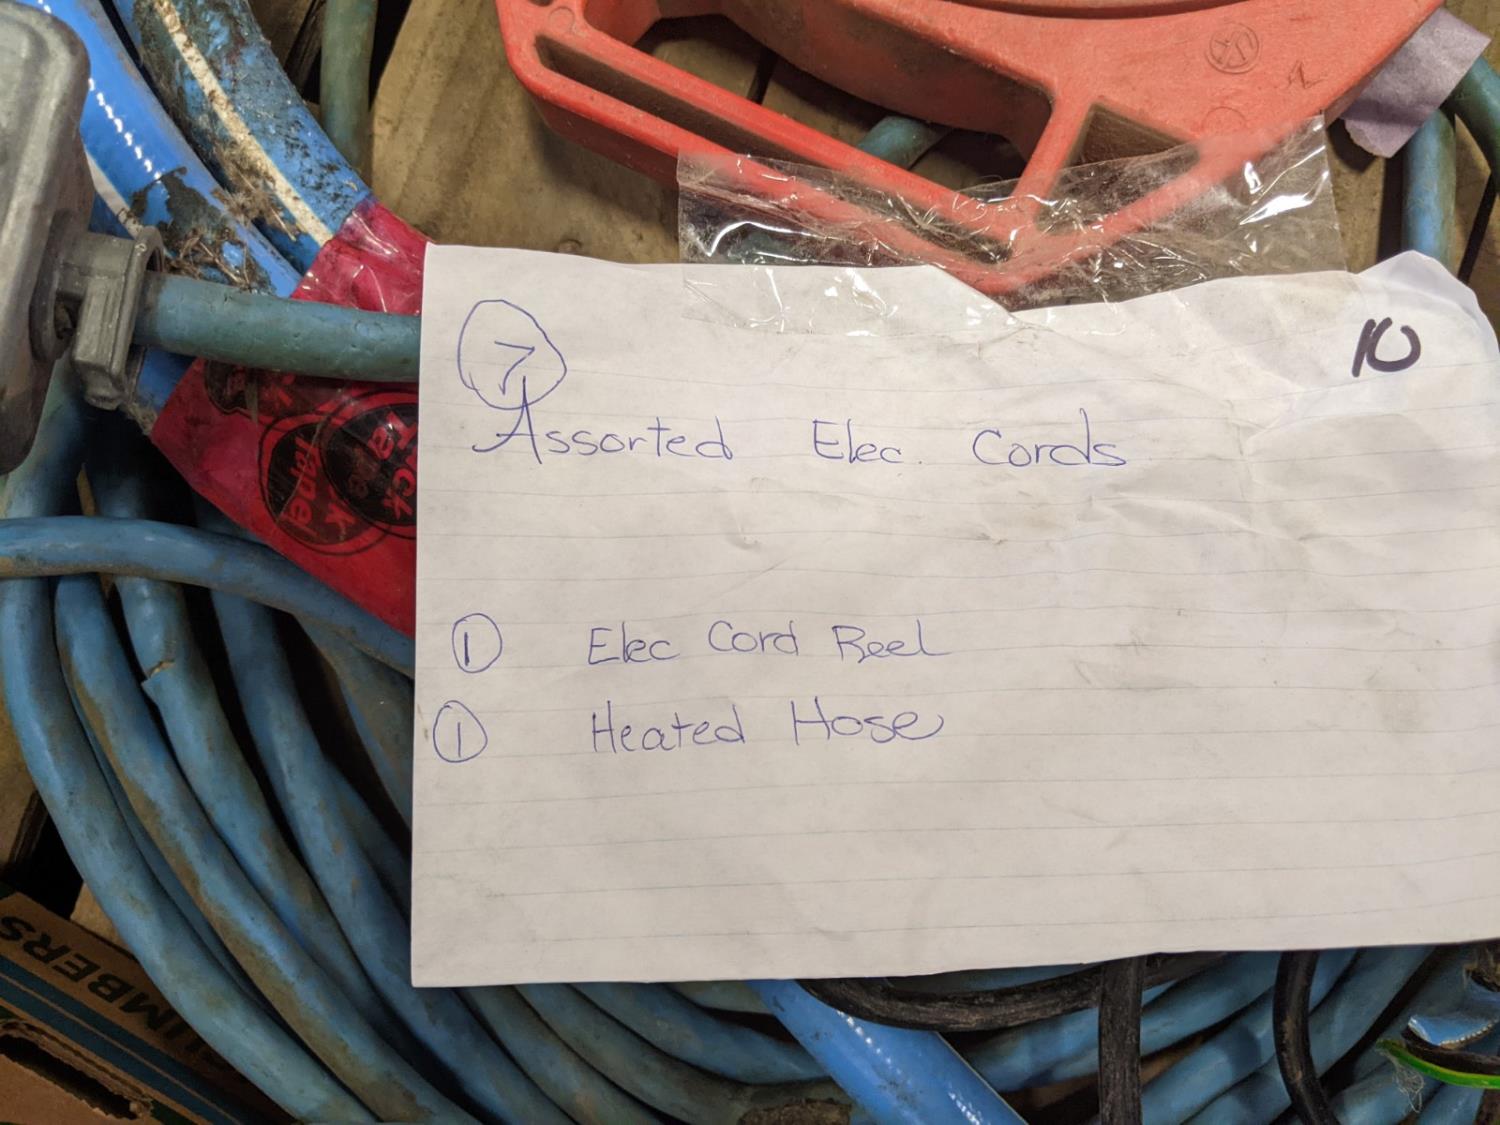 10
7
Assorted Elec. Cords
1 Elec Cord Reel
1 Heated Hose
UMBERS